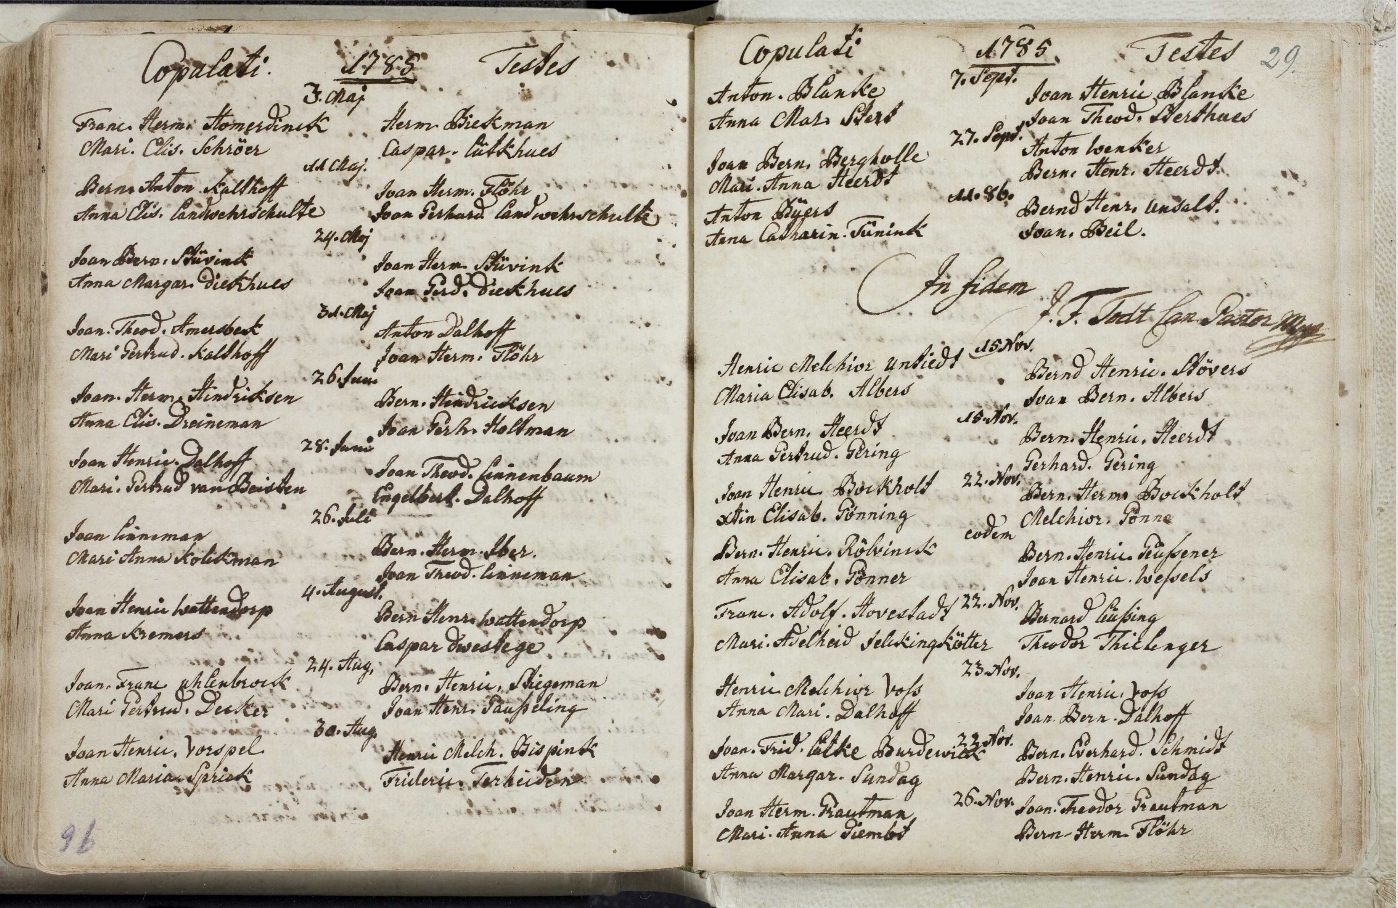 Copulati. 1785 Testes
3. Maj
Franc. Herm. Homerdinck Herm. Bickman
Mari. Elis. Schröer Caspar. Lütkhues
11 Maj.
Bern. Anton. Kalthoff Joan Herm. Flöhr
Anna Elis. Landwehrschulte Joan Gerhard Landwehrschulte
24. Maj
Joan Bern. Stüvink Joan Herm. Stüvink
Anna Margar. Dickhues Joan Gerd. Dickhues
31. Maj
Joan. Theod. Amersbeck Anton Dalhoff
Mari Gertrud. Kalthoff Joan Herm. Flöhr
26. Juni
Joan. Herm. Hindricksen Bern. Hindricksen
Anna Elis. Dreineman Joan Gerh. Holtman
28. Juni
Joan Henric. Dalhoff Joan Theod. Linnenbaum
Mari. Gertrud van Beisten Engelbert. Dalhoff
26. Juli
Joan Linneman Bern. Herm. Iber.
Mari Anna Kolckman Joan Theod. Linneman
4. August.
Joan Henric Wattendorp Bern Henr. Wattendorp
Anna Kremers Caspar Dwestege
24. Aug.
Joan. Franc Uhlenbrock Bern. Henric. Stiegeman
Mari Gertrud. Decker Joan Henr. Saußeling
30. Aug.
Joan Henric. Vorspel Henric Melch. Bispinck
Anna Maria Sprick Frideric. Terheiden
96
Copulati 1785. Testes 29.
7. Sept.
Anton. Blanke Joan Henric Blanke
Anna Mar. Stert Joan Theod. Sterthues
27. Sept.
Joan Bern. Bergholle Anton Wenker
Mari. Anna Heerdt Bern. Henr. Heerdt.
11. 8b.
Anton Büers Bernd Henr. Unsalt.
Anna Catharin. Tünink Joan. Beil.
In fidem
J. F. Todt Can. Pastor
15 Nov.
Henric Melchior Unsiedt Bernd Henric. Stövers
Maria Elisab. Albers Joan Bern. Albers
15. Nov.
Joan Bern. Heerdt Bern. Henric. Heerdt
Anna Gertrud. Gering Gerhard. Gering
22. Nov.
Joan Henric Bockholt Bern. Herm. Bockholt
Xtin Elisab. Gönning Melchior. Gönne
eodem
Bern. Henric. Rölvinck Bern. Henric. Geußener
Anna Elisab. Gönner Joan Henric. Weßels
22. Nov.
Franc. Adolf. Hovestadt Bernard Lußing
Mari. Adelheid Selckingkötter Theodor Thielenger
23. Nov.
Henric Melchior Voss Joan Henric. Voss
Anna Mari. Dalhoff Joan Bern. Dalhoff
22. Nov.
Joan. Frid. Lütke Burdewick Bern. Everhard. Schmidt
Anna Margar. Sundag Bern. Henric. Sundag
26. Nov.
Joan Herm. Grautman Joan. Theodor Grautman
Mari. Anna Bern. Herm. Flöhr